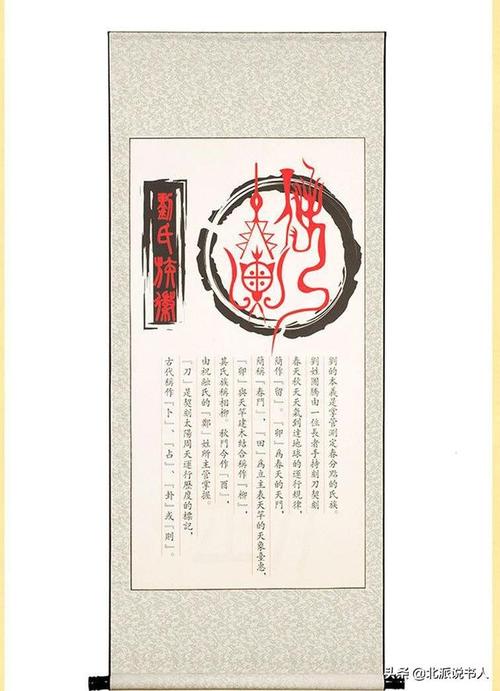 劉氏族徽
劉的本義是掌管測定春分點的氏族。
劉姓圖騰由一位長者手持刻刀契刻
春天秋天天氣到達地球的運行規律,
簡作『留』。『卯』為春天的天門,
簡稱『春門』,『田』為立主表天竿的天象臺惠,
『卯』與天竿建木結合稱作『柳』,
其氏族稱相柳,秋門今作『酉』,
由祝融氏的『鄭』姓所主管掌握。
『刀』是契刻太陽周天運行歷度的標記,
古代稱作『卜』、『占』、『卦』或『則』。
头条 @北派说书人